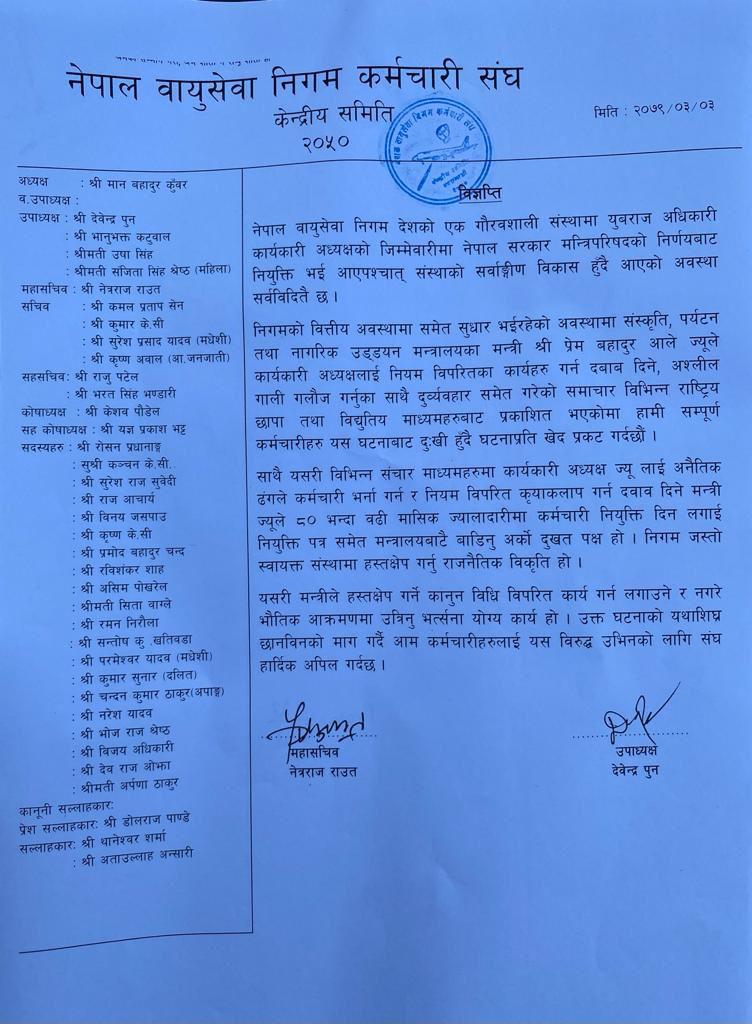 नेपाल वायुसेवा निगम कर्मचारी संघ
केन्द्रीय समिति
२०५०
मिति : २०७९/०३/०३
अध्यक्ष : श्री मान बहादुर कुँवर
व.उपाध्यक्ष :
उपाध्यक्ष : श्री देवेन्द्र पुन
: श्री भानुभक्त कटुवाल
: श्रीमती उषा सिंह
: श्रीमती संजिता सिंह श्रेष्ठ (महिला)
महासचिव : श्री नेत्रराज राउत
सचिव : श्री कमल प्रताप सेन
: श्री कुमार के.सी
: श्री सुरेश प्रसाद यादव (मधेशी)
: श्री कृष्ण अवाल (आ.जनजाती)
सहसचिव: श्री राजु पटेल
: श्री भरत सिंह भण्डारी
कोषाध्यक्ष : श्री केशव पौडेल
सह कोषाध्यक्ष : श्री यज्ञ प्रकाश भट्ट
सदस्यहरु : श्री रोसन प्रधानाङ्ग
: सुश्री कञ्चन के.सी.
: श्री सुरेश राज सुवेदी
: श्री राज आचार्य
: श्री विनय जसपाउ
: श्री कृष्ण के.सी
: श्री प्रमोद बहादुर चन्द
: श्री रविशंकर शाह
: श्री असिम पोखरेल
: श्रीमती सिता वाग्ले
: श्री रमन निरौला
: श्री सन्तोष कु .खतिवडा
: श्री परमेश्वर यादव (मधेशी)
: श्री कुमार सुनार (दलित)
: श्री चन्दन कुमार ठाकुर(अपाङ्ग)
: श्री नरेश यादव
: श्री भोज राज श्रेष्ठ
: श्री विजय अधिकारी
: श्री देव राज ओझा
: श्रीमती अर्पणा ठाकुर
कानूनी सल्लाहकार:
प्रेश सल्लाहकार: श्री डोलराज पाण्डे
सल्लाहकार: श्री थानेश्वर शर्मा
: श्री अताउल्लाह अन्सारी
विज्ञप्ति
नेपाल वायुसेवा निगम देशको एक गौरवशाली संस्थामा युबराज अधिकारी
कार्यकारी अध्यक्षको जिम्मेवारीमा नेपाल सरकार मन्त्रिपरिषदको निर्णयबाट
नियुक्ति भई आएपश्चात् संस्थाको सर्वाङ्गीण विकास हुँदै आएको अवस्था
सर्वविदितै छ ।
निगमको वित्तीय अवस्थामा समेत सुधार भईरहेको अवस्थामा संस्कृति, पर्यटन
तथा नागरिक उड्डयन मन्त्रालयका मन्त्री श्री प्रेम बहादुर आले ज्यूले
कार्यकारी अध्यक्षलाई नियम विपरितका कार्यहरु गर्न दबाव दिने, अश्लील
गाली गलौज गर्नुका साथै दुर्व्यवहार समेत गरेको समाचार विभिन्न राष्ट्रिय
छापा तथा विद्युतिय माध्यमहरुबाट प्रकाशित भएकोमा हामी सम्पूर्ण
कर्मचारीहरु यस घटनाबाट दुःखी हुँदै घटनाप्रति खेद प्रकट गर्दछौं ।
साथै यसरी विभिन्न संचार माध्यमहरुमा कार्यकारी अध्यक्ष ज्यू लाई अनैतिक
ढंगले कर्मचारी भर्ना गर्न र नियम विपरित कृयाकलाप गर्न दवाव दिने मन्त्री
ज्यूले ८० भन्दा वढी मासिक ज्यालादारीमा कर्मचारी नियुक्ति दिन लगाई
नियुक्ति पत्र समेत मन्त्रालयबाटै बाडिनु अर्को दुखत पक्ष हो । निगम जस्तो
स्वायक्त संस्थामा हस्तक्षेप गर्नु राजनैतिक विकृति हो ।
यसरी मन्त्रीले हस्तक्षेप गर्ने कानुन विधि विपरित कार्य गर्न लगाउने र नगरे
भौतिक आक्रमणमा उत्रिनु भर्त्सना योग्य कार्य हो । उक्त घटनाको यथाशिघ्र
छानविनको माग गर्दै आम कर्मचारीहरुलाई यस विरुद्ध उभिनको लागि संघ
हार्दिक अपिल गर्दछ ।
महासचिव
नेत्रराज राउत
उपाध्यक्ष
देवेन्द्र पुन